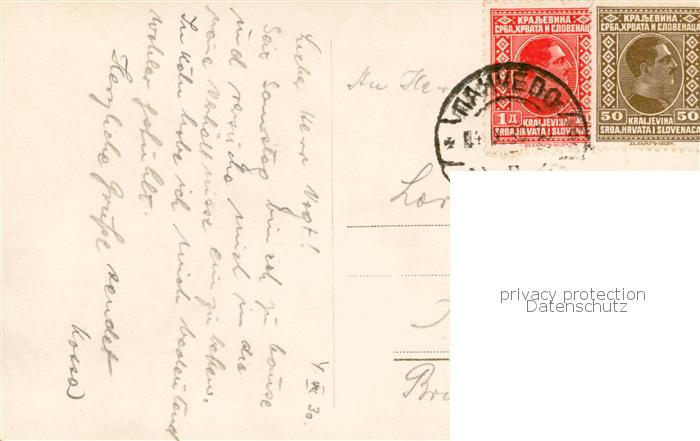 4 VI 30.
Lieber Herr Vogt!
Seit Samstag bin ich zu Hause
und versuche mich in die
Verhältnisse einzuleben.
In Köln habe ich mich bedeutend
wohler gefühlt.
Herzliche Grüße sendet
Kossa
An Her
КРАЉЕВИНА
СРБА, ХРВАТА И СЛОВЕНАЦА
1 Д
KRALJEVINA
SRBA, HRVATA I SLOVENACA
КРАЉЕВИНА
СРБА, ХРВАТА И СЛОВЕНАЦА
50 KRALJEVINA 50
SRBA, HRVATA I SLOVENACA
ПАНЧЕВО
Br
privacy protection
Datenschutz